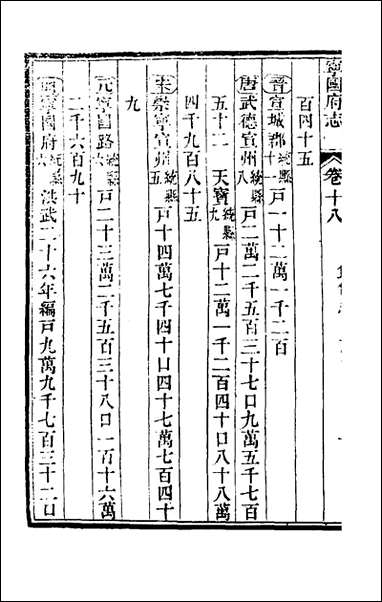 寧國府志 卷十八
百四十五
晉宣城郡統縣十一戶一十二萬一千二百
唐武德宣州統縣八戶二萬二千五百三十七口九萬五千七百
五十二 天寶統縣九戶十二萬一千二百四十口八十八萬
四千九百八十五
宋崇寧宣州統縣五戶十四萬七千四十口四十七萬七百四十
九
元寧國路統縣六戶二十三萬二千五百三十八口一百十六萬
二千六百九十
明寧國府統縣六洪武二十六年編戶九萬九千七百三十二口